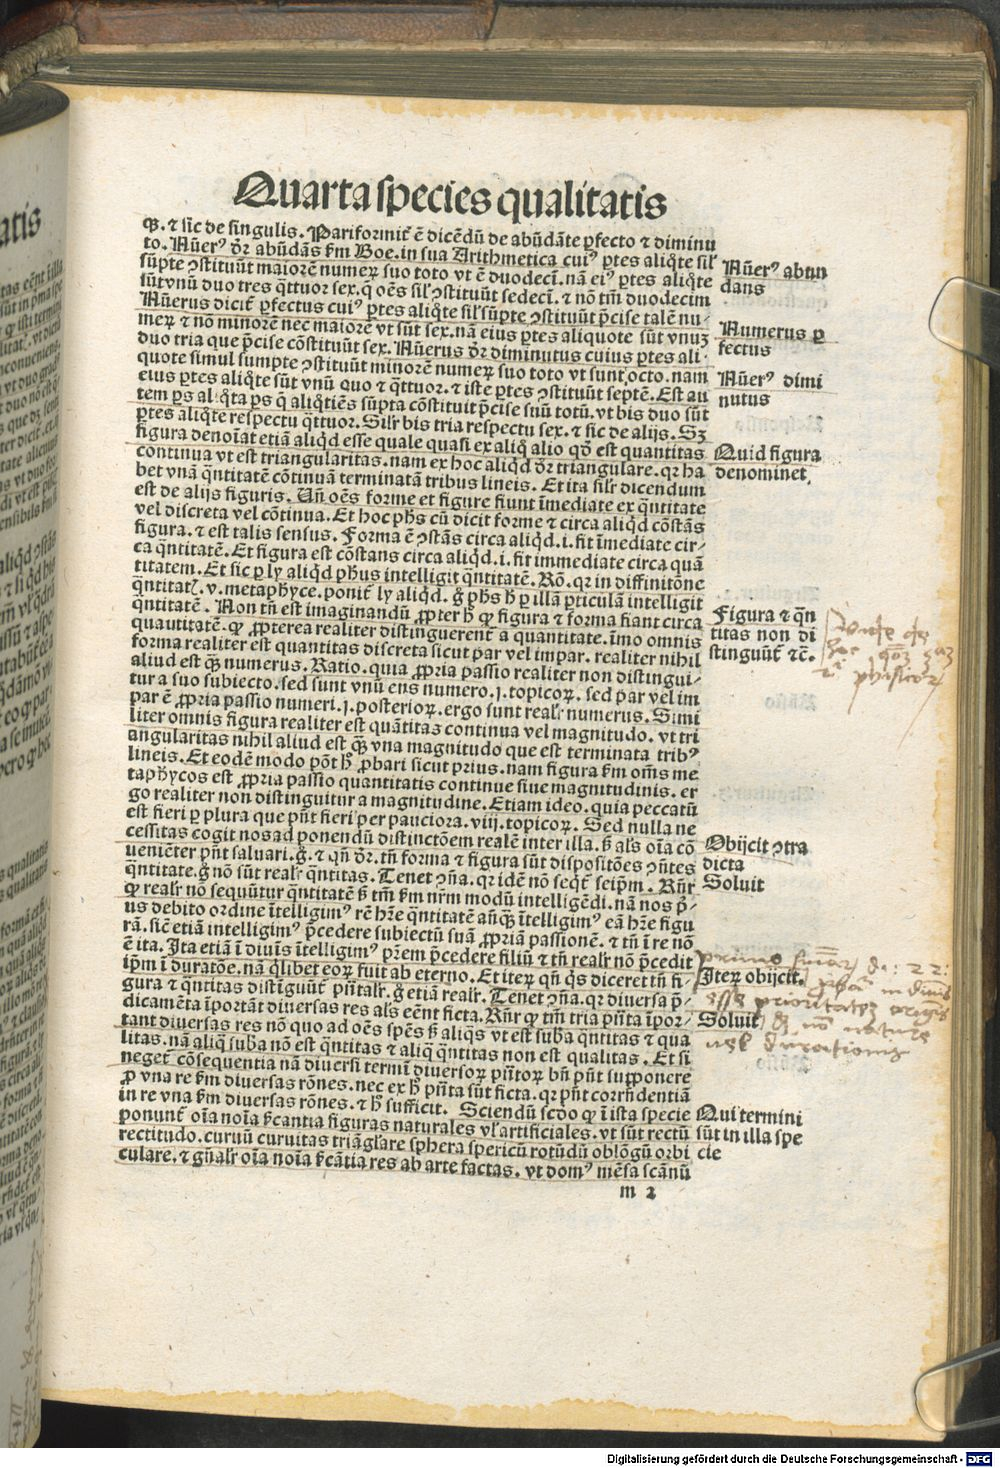 Quarta species qualitatis
qꝫ. ⁊ sic de singulis. Pariformit̃ ē dicēdū de abūdāte ꝑfecto ⁊ diminu
to. Nūerꝰ dr̄ abūdās ẜm Boe. in sua Arithmetica cuiꝰ ꝑtes aliq̄te sil̓
sūpte ꝯstituūt maiorē numeꝝ suo toto vt ē duodecī. nā eiꝰ ꝑtes aliq̄te
sūt vnū duo tres q̄ttuor sex. q̄ oēs sil̓ ꝯstituūt sedecī. ⁊ nō tm̄ duodecim
Nūerus dicit̃ ꝑfectus cuiꝰ ꝑtes aliq̄te sil̓ sūpte ꝯstituūt p̄cise talē nu-
meꝝ ⁊ nō minorē nec maiorē vt sūt sex. nā eius ꝑtes aliquote sūt vnuꝫ
duo tria que p̄cise cōstituūt sex. Nūerus dr̄ diminutus cuius ꝑtes ali-
quote simul sumpte ꝯstituūt minorē numeꝝ suo toto vt sunt octo. nam
eius ꝑtes aliq̄te sūt vnū duo ⁊ q̄ttuor. ⁊ iste ꝑtes ꝯstituūt septē. Est au
tem ꝑs aliq̄ta ꝑs q̄ aliq̄tiēs sūpta cōstituit p̄cise suū totū. vt bis duo sūt
ꝑtes aliq̄te respectu q̄ttuor. Silr̓ bis tria respectu sex. ⁊ sic de alijs. Sꝫ
figura denoīat etiā aliqd̄ esse quale quasi ex aliq̄ alio qd̄ est quantitas
continua vt est triangularitas. nam ex hoc aliqd̄ dr̄ triangulare. qꝛ ha
bet vnā q̄ntitatē cōtinuā terminatā tribus lineis. Et ita silr̓ dicendum
est de alijs figuris. Vn̄ oēs forme et figure fiunt īmediate ex q̄ntitate
vel discreta vel cōtinua. Et hoc ph̄s cū dicit forme ⁊ circa aliqd̄ cōstās
figura. ⁊ est talis sensus. Forma ē ꝯstās circa aliqd̄. i. fit īmediate cir-
ca q̄ntitatē. Et figura est cōstans circa aliqd̄. i. fit immediate circa quā
titatem. Et sic ꝑ ly aliqd̄ ph̄us intelligit q̄ntitatē. Rō. qꝛ in diffinitōne
q̄ntitatꝭ. v. metaphyce. ponit̃ ly aliqd̄. g̊ ph̄s h̄ ꝑ illā ꝑticulā intelligit
q̄ntitatē. Non tn̄ est imaginandū ꝓpter h̄ ꝙ figura ⁊ forma fiant circa
quautitatē. ꝙ ꝓpterea realiter distinguerent̃ a quantitate. īmo omnis
forma realiter est quantitas discreta sicut par vel impar. realiter nihil
aliud est q̄ꝫ numerus. Ratio. quia ꝓpria passio realiter non distingui-
tur a suo subiecto. sed sunt vnū ens numero. j. topicoꝝ. sed par vel im
par ē ꝓpria passio numeri. j. posterioꝝ. ergo sunt realr̓ numerus. Simi
liter omnis figura realiter est quātitas continua vel magnitudo. vt tri
angularitas nihil aliud est q̄ꝫ vna magnitudo que est terminata tribꝰ
lineis. Et eodē modo pōt h̄ ꝓbari sicut prius. nam figura ẜm om̄s me
taphycos est ꝓpria passio quantitatis continue siue magnitudinis. er
go realiter non distinguitur a magnitudine. Etiam ideo. quia peccatū
est fieri ꝑ plura que pn̄t fieri per pauciora. viij. topicoꝝ. Sed nulla ne
cessitas cogit nos ad ponendū distinctōem realē inter illa. ẜ al̓s oīa cō
ueniēter pn̄t saluari. g̊. ⁊ qn̄ dr̄. tn̄ forma ⁊ figura sūt dispositōes ꝯn̄tes
q̄ntitatē. g̊ nō sūt realr̓ q̄ntitas. Tenet ꝯn̄a. qꝛ idē nō seqt̃ seip̄m. Rn̄r
ꝙ realr̓ nō sequūtur q̄ntitatē ẜ tm̄ ẜm nr̄m modū intelligēdi. nā nos pͥ-
us debito ordine ītelligimꝰ rē hr̄e q̄ntitatē anq̄ꝫ ītelligimꝰ eā hr̄e figu
rā. sic̄ etiā intelligimꝰ p̄cedere subiectū suā ꝓpriā passionē. ⁊ tn̄ ī re nō
ē ita. Ita etiā ī diuīs ītelligimꝰ pr̄em p̄cedere filiū ⁊ tn̄ realr̓ nō p̄cedit
ip̄m ī duratōe. nā q̄libet eoꝝ fuit ab eterno. Et iteꝝ qn̄ qs̄ diceret tn̄ fi-
gura ⁊ q̄ntitas distīguūt̃ p̄ntalr̓. g̊ etiā realr̓. Tenet ꝯn̄a. qꝛ diuersa p̄-
dicamēta īportāt diuersas res al̓s eēnt ficta. Rn̄r ꝙ tm̄ tria pn̄ta īpor-
tant diuersas res nō quo ad oēs spēs ẜ aliq̄s vt est suba q̄ntitas ⁊ qua
litas. nā aliq̄ suba nō est q̄ntitas ⁊ aliq̄ q̄ntitas non est qualitas. Et si
neget̃ cōsequentia nā diuersi termī diuersoꝝ pn̄toꝝ bn̄ pn̄t supponere
ꝓ vna re ẜm diuersas rōnes. nec ex h̄ pn̄ta sūt ficta. qꝛ pn̄t corrn̄dentiā
in re vna ẜm diuersas rōnes. ⁊ h̄ sufficit. Sciendū scdo ꝙ ī ista specie
ponunt̃ oīa noīa ẜcantia figuras naturales vl̓ artificiales. vt sūt rectū
rectitudo. curuū curuitas triāgl̓are sphera spericū rotūdū oblōgū orbi
culare. ⁊ gn̄alr̓ oīa noīa ẜcātia res ab arte factas. vt domꝰ mēsa scānū
m 2
Nūerꝰ abun
dans
Numerus ꝑ
fectus
Nūerꝰ dimi
nutus
Quid figura
denominet.
Figura ⁊ q̄n
titas non di
stinguūt̃ ⁊c̄.
Obijcit ꝯtra
dicta
Soluit
Iteꝝ obijcit.
Soluit
Qui termini
sūt in illa spe
cie
Digitalisierung gefördert durch die Deutsche Forschungsgemeinschaft - DFG